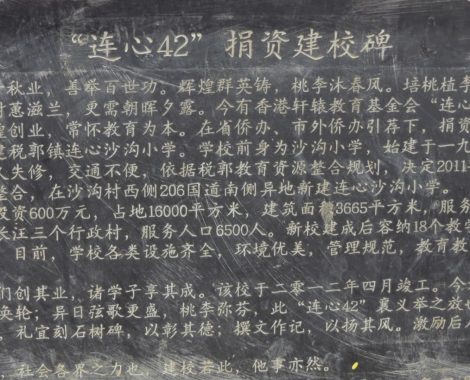 “连心42”捐资建校碑
秋业，善举百世功。辉煌群英铸，桃李沐春风。培桃植李
蕙滋兰，更需朝晖夕露。今有香港轩辕教育基金会“连心
创业，常怀教育为本。在省侨办、市外侨办引荐下，捐资
建税郭镇连心沙沟小学。学校前身为沙沟小学，始建于一九
失修，交通不便，依据税郭教育资源整合规划，决定2011
整合，在沙沟村西侧206国道南侧异地新建连心沙沟小学。
投资600万元，占地16000平方米，建筑面积3665平方米，服务
长汪三个行政村，服务人口6500人。新校建成后容纳18个教学
目前，学校各类设施齐全，环境优美，管理规范，教育教
们创其业，诸学子享其成。该校于二零一二年四月竣工。今
英轮；异日弦歌更盛，桃李弥芬，此“连心42”襄义举之效
，礼宜刻石树碑，以彰其德；撰文作记，以扬其风。激励后
，社会各界之力也，建校若此，他事亦然。